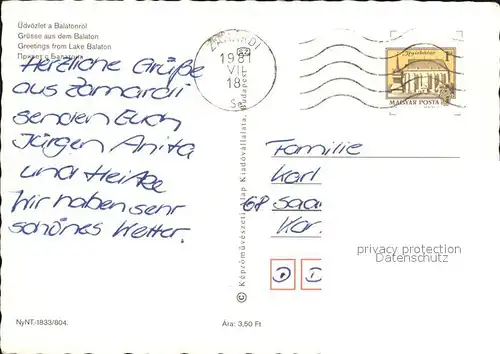 Üdvözlet a Balatonról
Grüsse aus dem Balaton
Greetings from Lake Balaton
Привет с Балатона
Herzliche Grüße
aus Zamardi
senden Euch
Jürgen Anita
und Heike
Wir haben sehr
schönes Wetter.
ZAMÁRDI
1981
VII
18
MAGYAR POSTA
Képzőművészeti Alap Kiadóvállalata, Budapest
Familie
Karl
68 Saar
Kar.
D
privacy protection
Datenschutz
NyNT.-1833/804.
Ára: 3,50 Ft